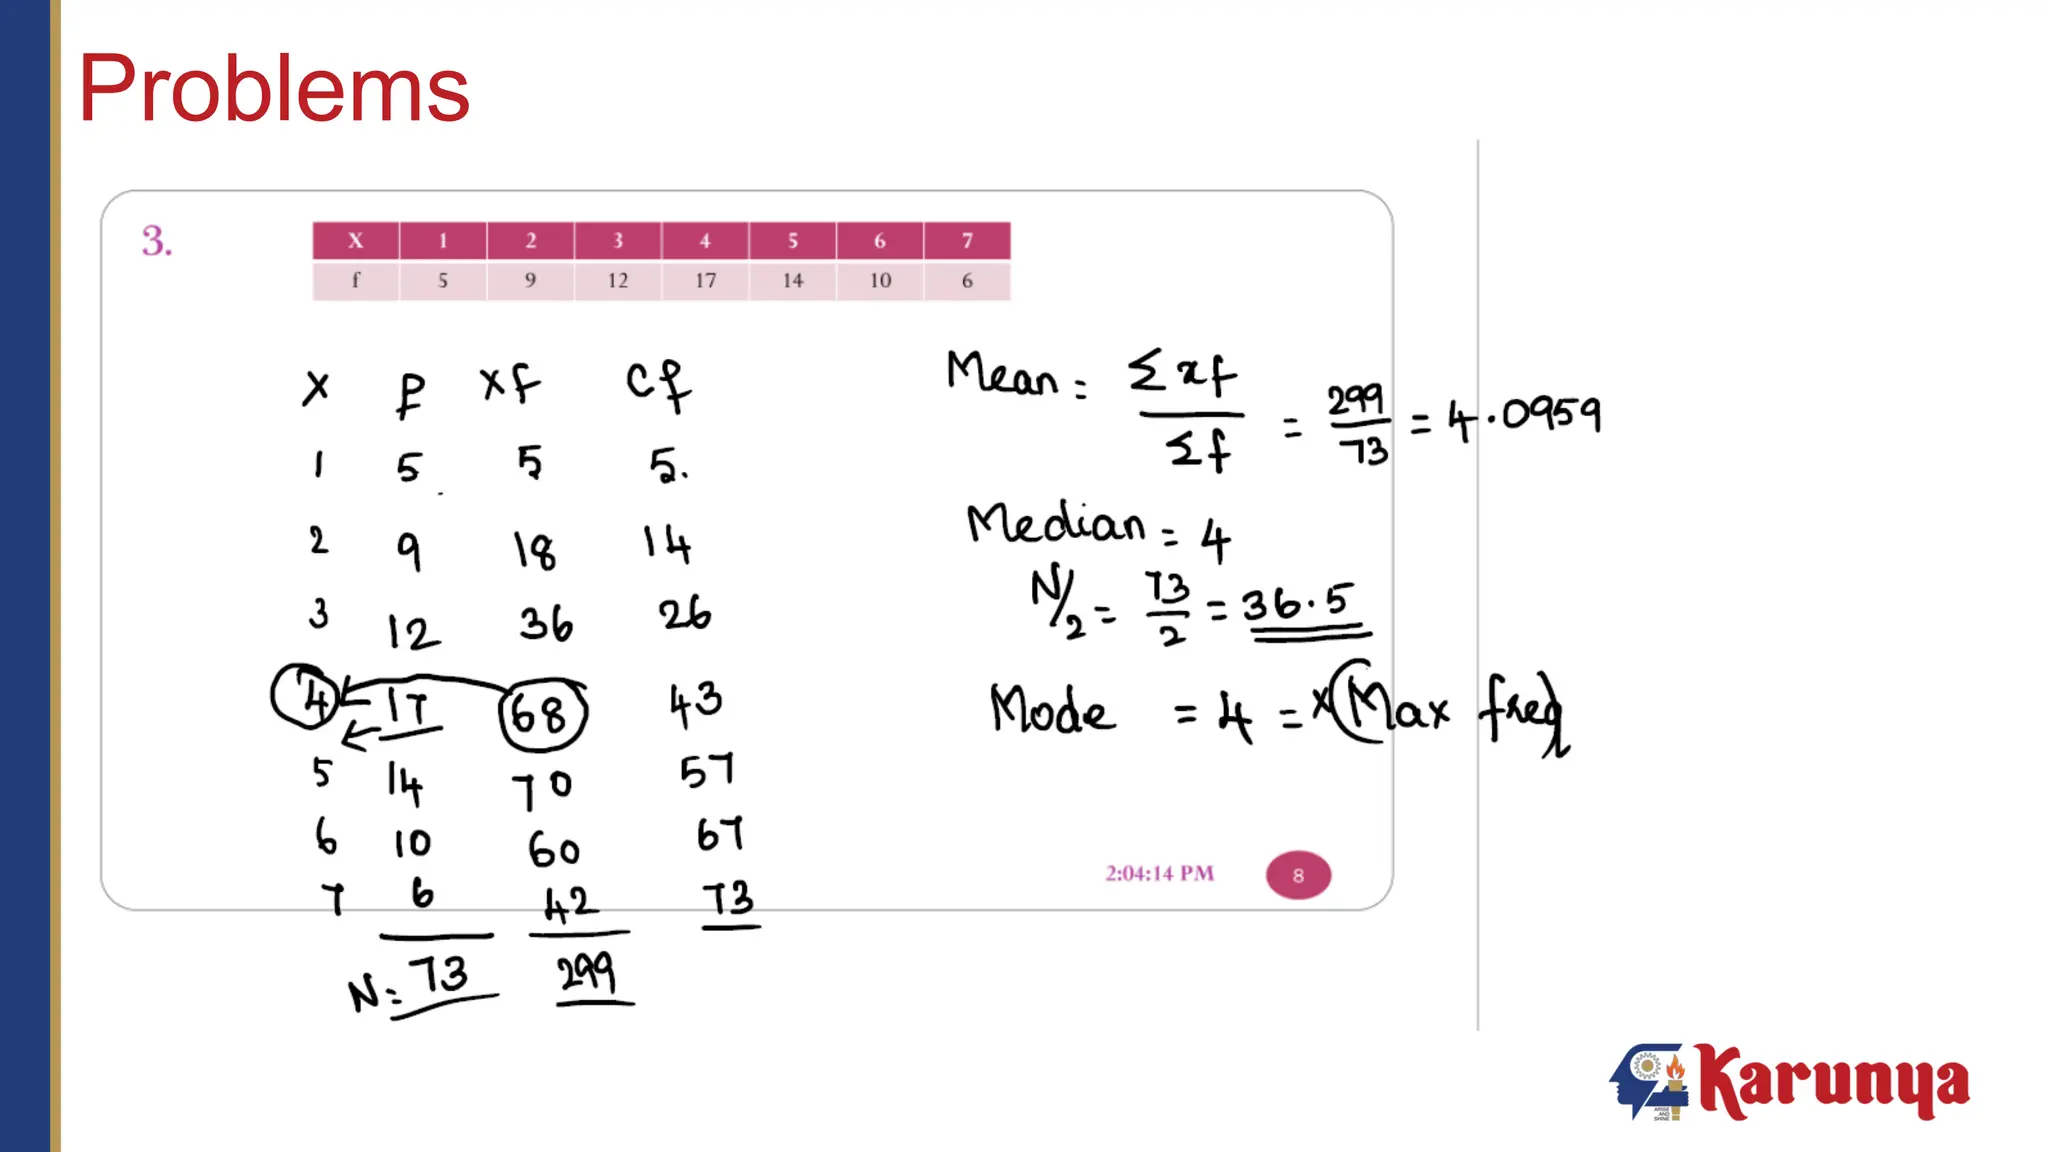 Problems
3.
X 1 2 3 4 5 6 7
f 5 9 12 17 14 10 6
x f xf cf
1 5 5 5.
2 9 18 14
3 12 36 26
4 17 68 43
5 14 70 57
6 10 60 67
7 6 42 73
N= 73 299
Mean = Σxf / Σf = 299/73 = 4.0959
Median = 4
N/2 = 73/2 = 36.5
Mode = 4 = x(Max freq)
2:04:14 PM 8
ARISE
AND
SHINE
Karunya